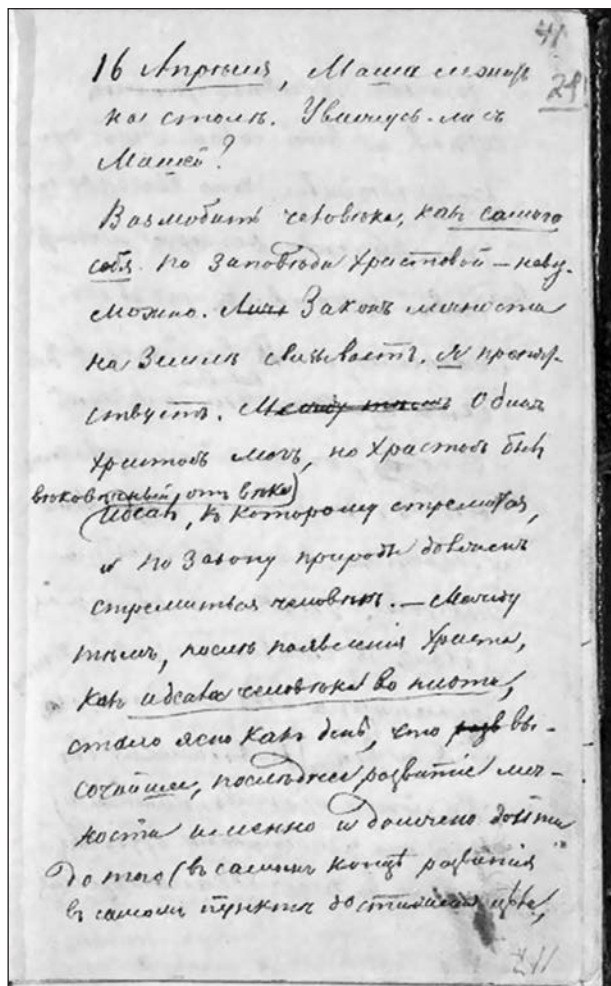 41
29
16 Апрѣля, Маша лежитъ
на столѣ. Увижусь-ли съ
Машей?
Возлюбить человѣка, какъ самого
себя по Заповѣди Христовой – невоз-
можно. Законъ личности
на Землѣ связываетъ. Я препят-
ствуетъ. Между тѣмъ Одинъ
Христосъ могъ, но Христосъ былъ
вѣковѣчный, отъ вѣка
идеалъ, къ которому стремится,
и по Закону природы долженъ
стремиться человѣкъ. – Между
тѣмъ, послѣ появленія Христа,
какъ идеала человѣка во плоти,
стало ясно какъ день, что разв вы-
сочайшее, послѣднее развитіе лич-
ности именно и должно дойти
до того (въ самомъ концѣ развитія
въ самомъ пунктѣ достиженія цѣли,